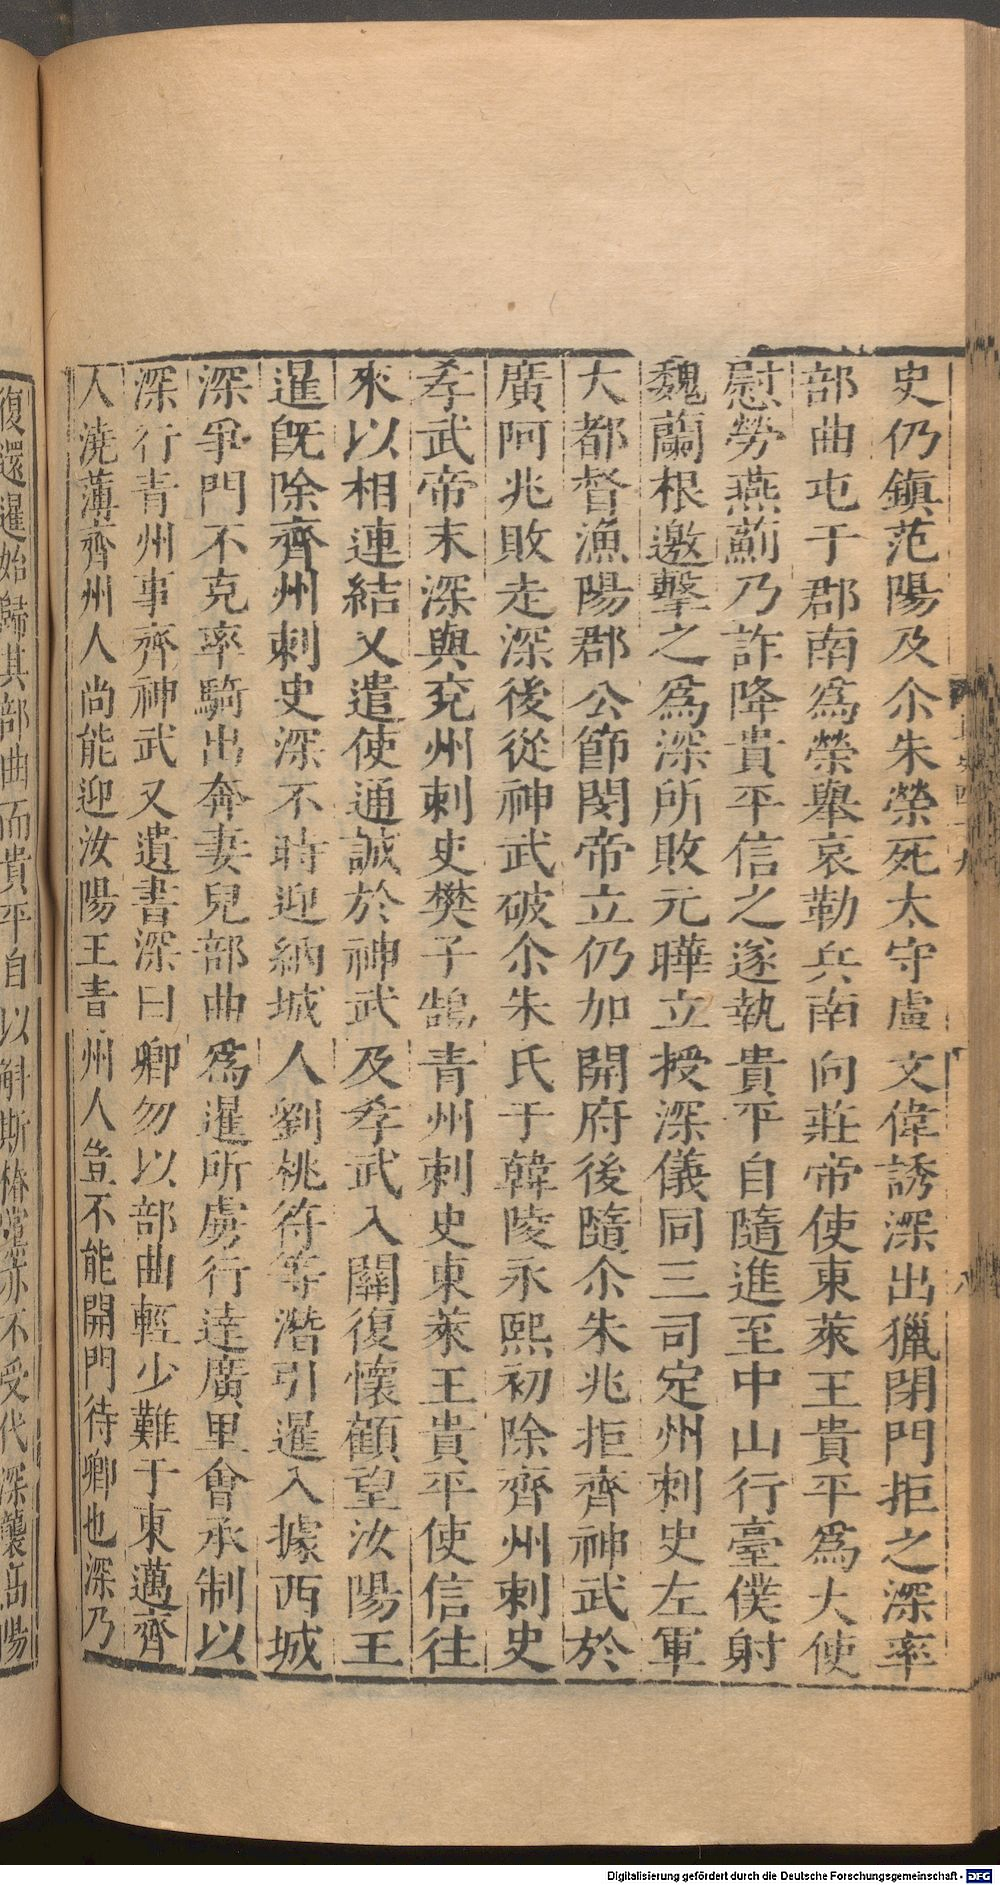 史仍鎮范陽及尒朱榮死太守盧文偉誘深出獵閉門拒之深率
部曲屯于郡南爲榮舉哀勒兵南向莊帝使東萊王貴平爲大使
慰勞燕薊乃詐降貴平信之遂執貴平自隨進至中山行臺僕射
魏蘭根邀擊之爲深所敗元曄立授深儀同三司定州刺史左軍
大都督漁陽郡公節閔帝立仍加開府後隨尒朱兆拒齊神武於
廣阿兆敗走深後從神武破尒朱氏于韓陵永熙初除齊州刺史
孝武帝末深與兖州刺史樊子鵠青州刺史東萊王貴平使信往
來以相連結又遣使通誠於神武及孝武入關復懷顧望汝陽王
暹旣除齊州刺史深不時迎納城人劉桃符等潛引暹入據西城
深爭門不克率騎出奔妻兒部曲爲暹所虜行達廣里會承制以
深行青州事齊神武又遺書深曰卿勿以部曲輕少難于東邁齊
人澆薄齊州人尚能迎汝陽王青州人豈不能開門待卿也深乃
復還暹始歸其部曲而貴平自以斛斯椿黨亦不受代深襲高陽
Digitalisierung gefördert durch die Deutsche Forschungsgemeinschaft - DFG